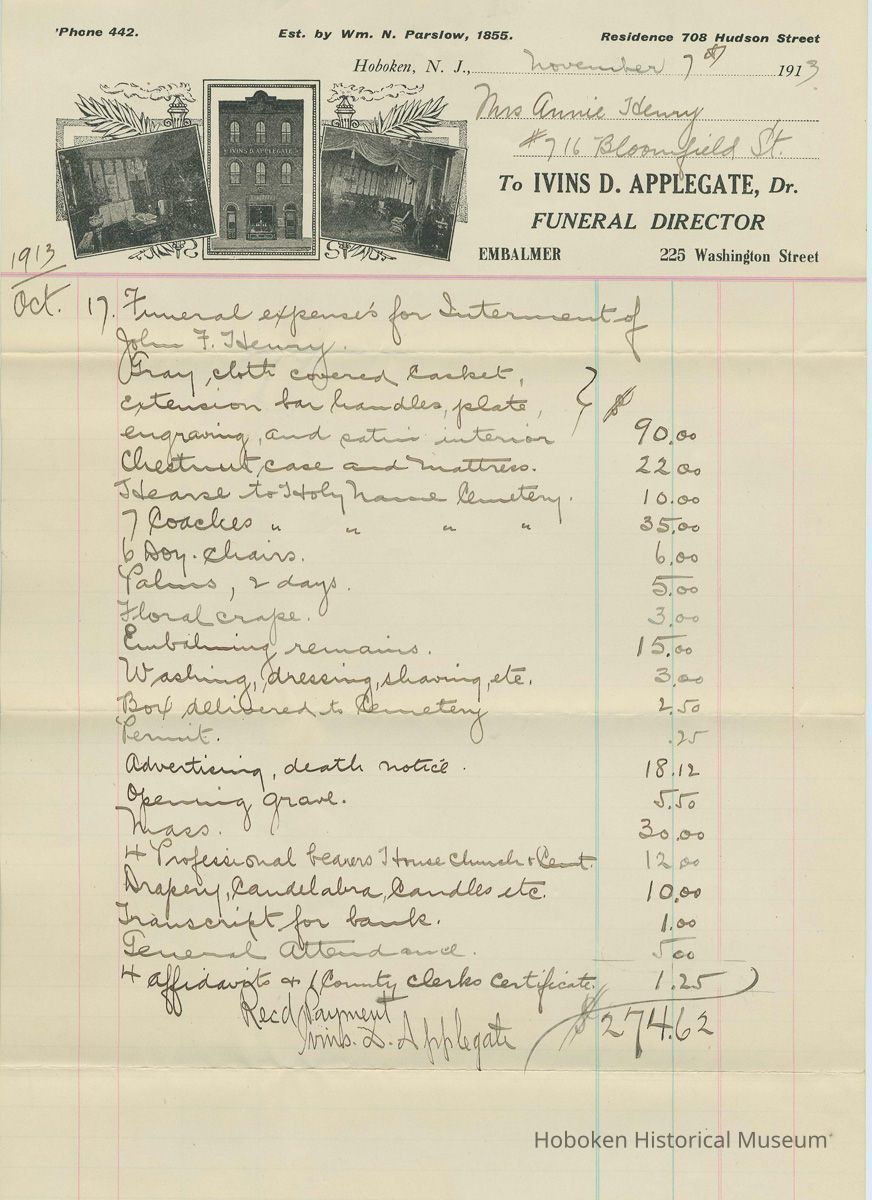 'Phone 442. Est. by Wm. N. Parslow, 1855. Residence 708 Hudson Street
Hoboken, N. J., November 7th 1913
Mrs Annie Henry
#716 Bloomfield St.
IVINS D. APPLEGATE
To IVINS D. APPLEGATE, Dr.
FUNERAL DIRECTOR
EMBALMER 225 Washington Street
1913
Oct. 17. Funeral expense's for Interment of
John F. Henry.
Gray, cloth covered Casket,
extension bar handles, plate, } $
engraving, and satin interior 90.00
Chestnut case and mattress. 22.00
Hearse to Holy Name Cemetery. 10.00
7 Coaches " " " " 35.00
6 Doz. chairs. 6.00
Palms, 2 days. 5.00
Floral crape. 3.00
Embalming remains. 15.00
Washing, dressing, shaving, etc. 3.00
Box delivered to Cemetery 2.50
Permit. .25
Advertising, death notice. 18.12
Opening grave. 5.50
Mass. 30.00
4 Professional bearers House church & Cemt. 12.00
Drapery, Candelabra, Candles etc. 10.00
Transcript for bank. 1.00
General Attendance. 5.00
4 affidavits & 1 County Clerks Certificate. 1.25
Recd Payment $274.62
Ivins. D. Applegate
Hoboken Historical Museum